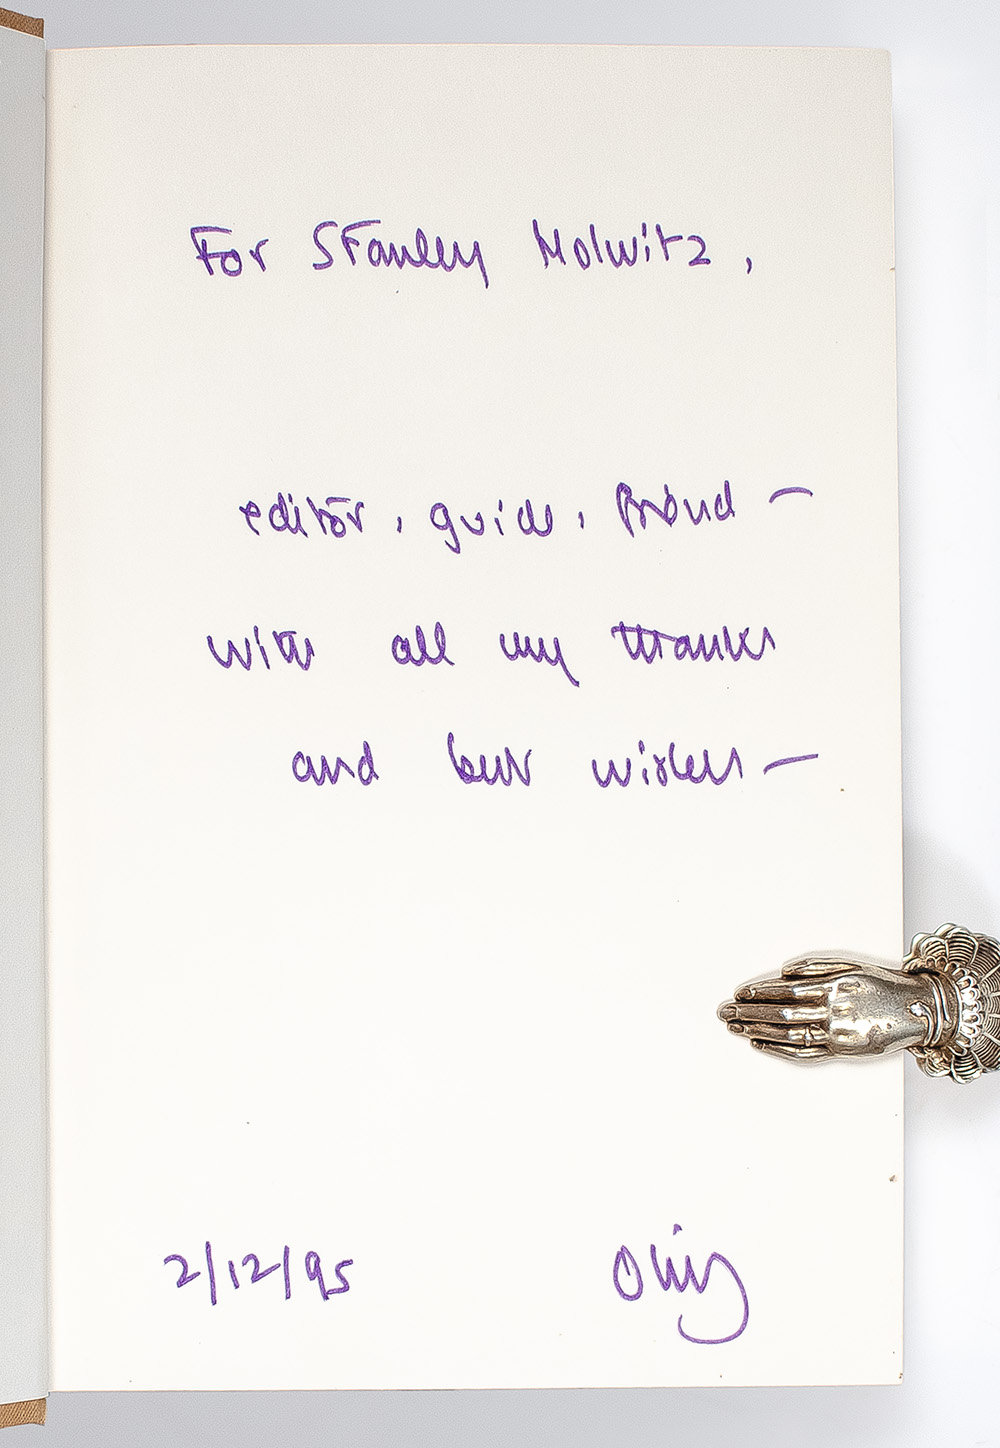 For Stanley Molwitz,
editor, guide, friend —
with all my thanks
and best wishes —
2/12/95